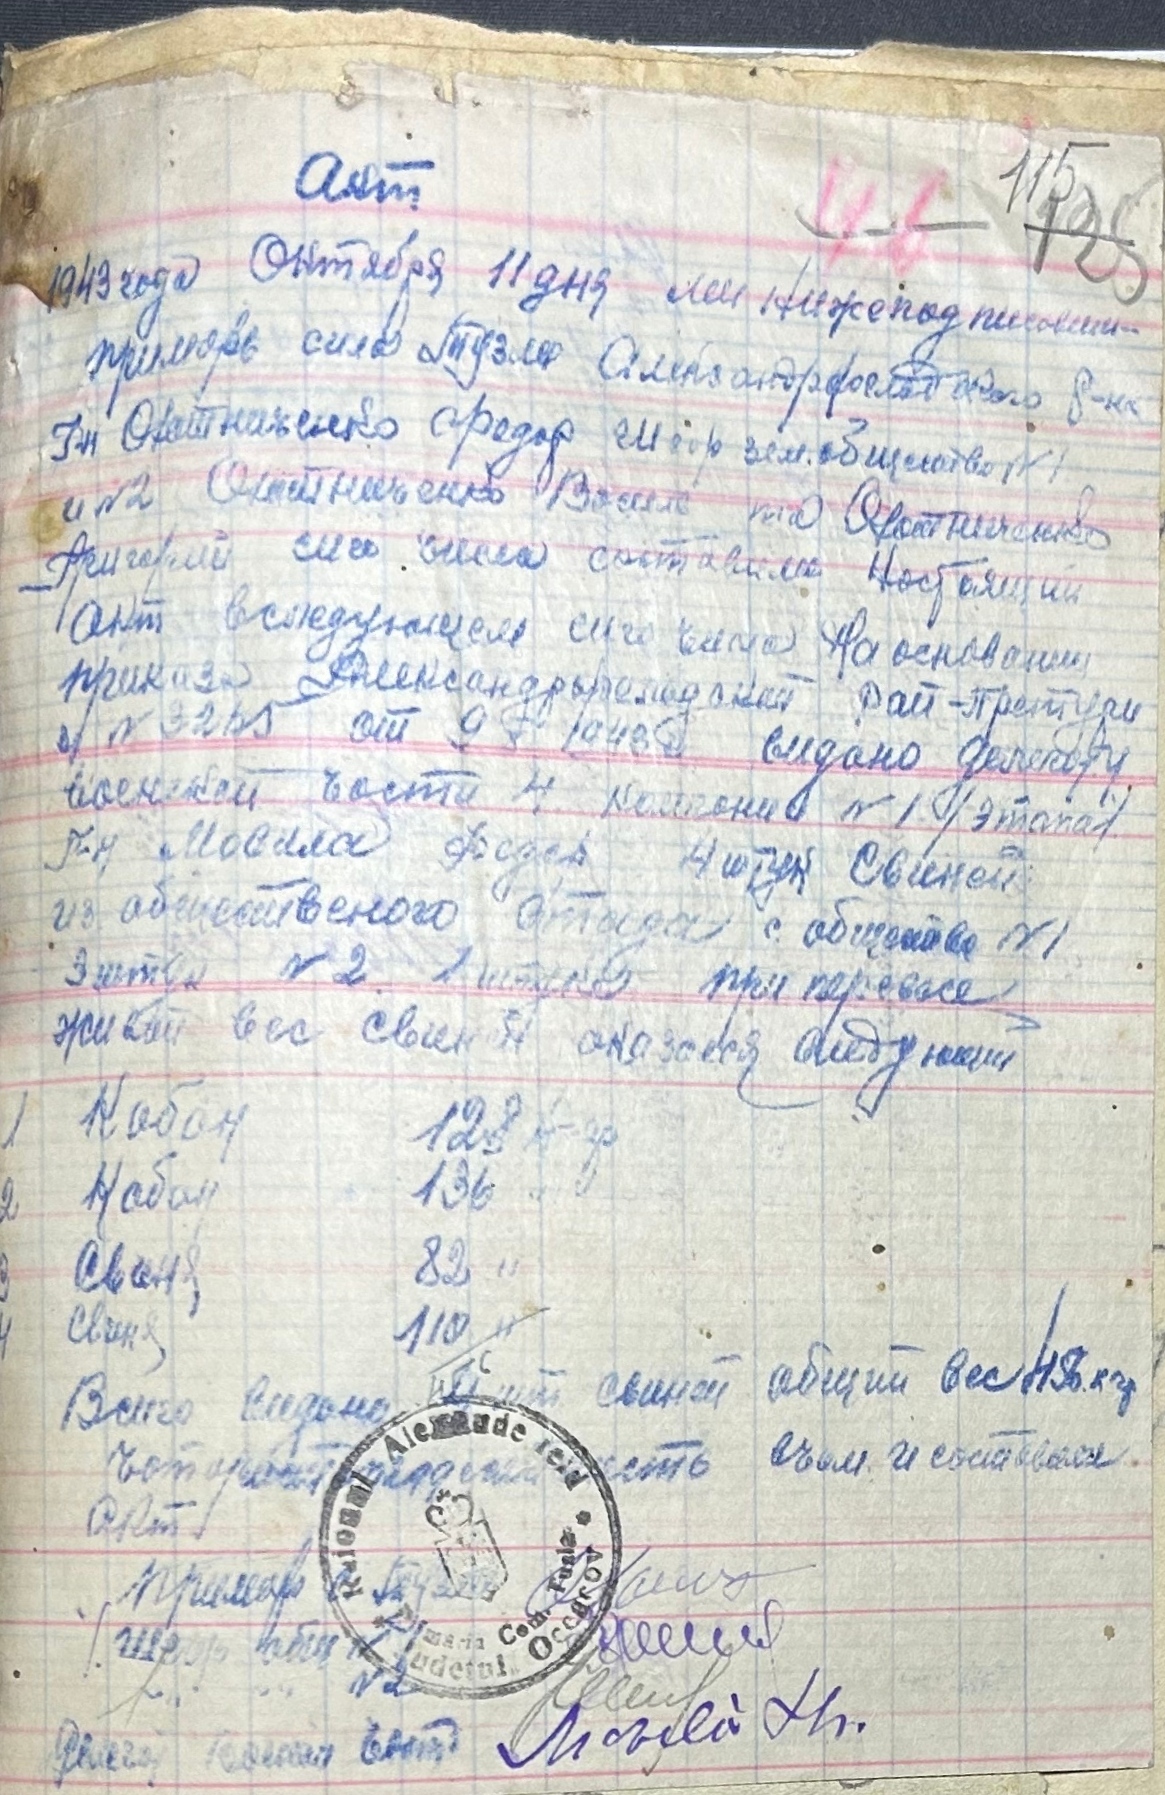 115
125
Акт
1943 года Октября 11 дня ми Нижеподписавши
примарь села Тузла Александрфельдского р-на
Г-н Охотниченко Федор шефр зем. общества N1
и N2 Охотниченко Василь та Охотниченко
Григорий сиго числа составили Настоящий
Акт вследующем сиго числа На основании
приказа Александрфельдской Рай-Претури
N 3255 от видано делегату
военской части 4 компонии N 1 /Этапа/
Г-н Мовила 4 штук Свиней
из общественого с общества N1
3 штуки N2 1 штука при перевесе
живой вес свиней оказался следующий
1 Кабан 128 к-гр
2 Кабан 136 "
3 Свиня 82 "
4 Свиня 110 "
Всиго видано 4 шт свиней общий вес 456 к-гр
часть в чом и составлен
Акт
Примарь с. Тузли
Шефр общ N1
" " N2
Делегат воиной част
Raionul Alexandefeld
Primaria Com. Tuzla
Judetul Oceacov